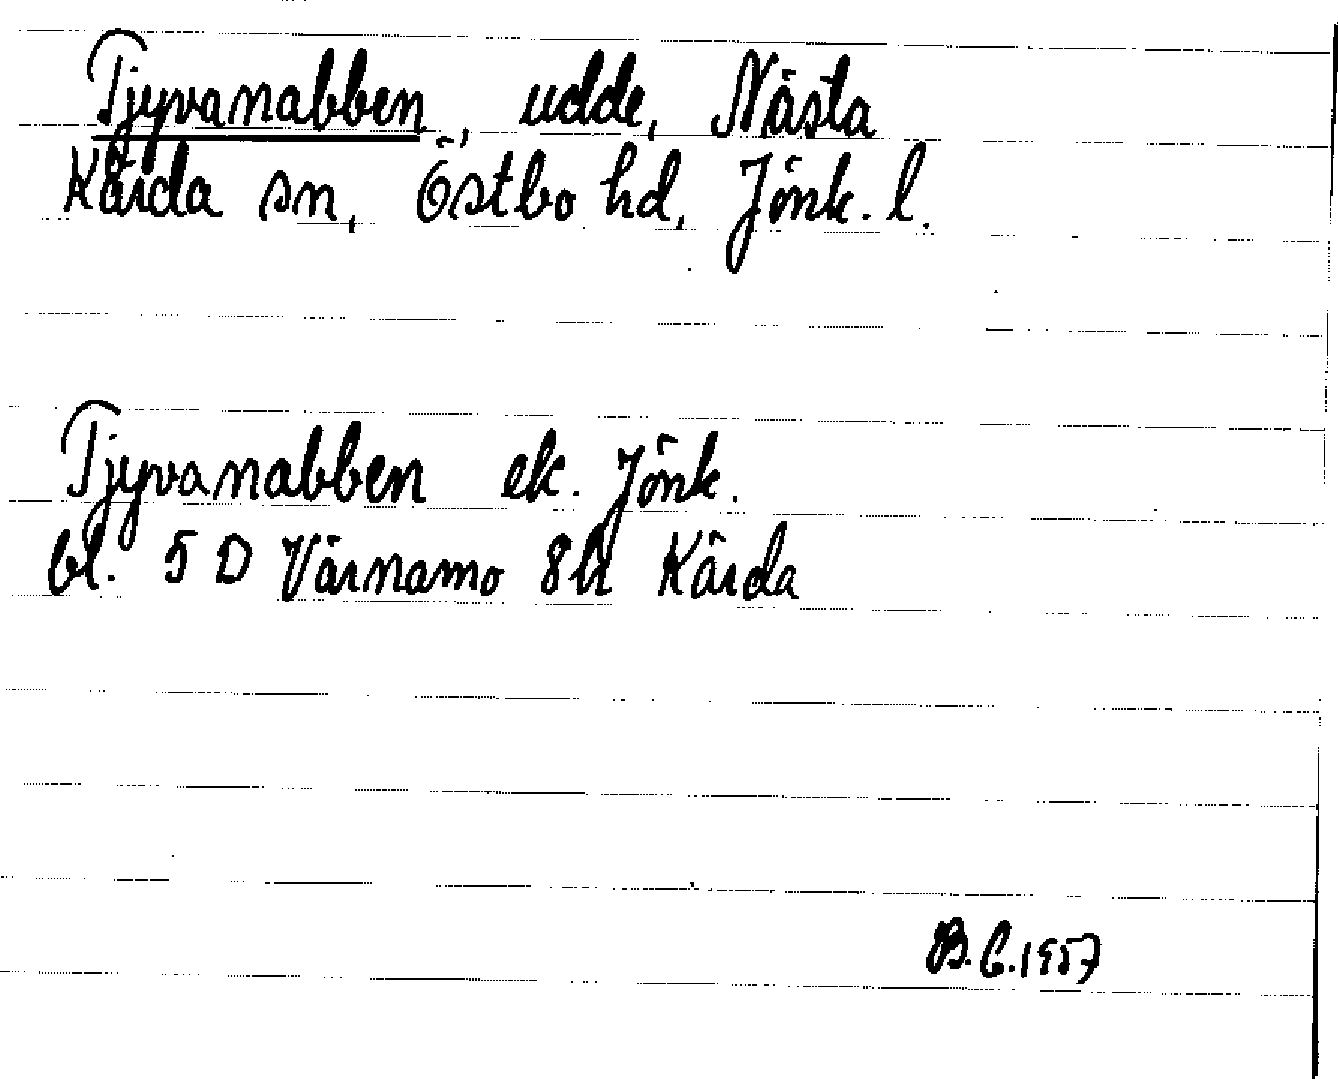 Tjyvanabben, udde, Nästa
Kärda sn, Östbo hd, Jönk. l.
Tjyvanabben ek. Jönk.
bl. 5 D Värnamo 8h Kärda
B.C. 1957